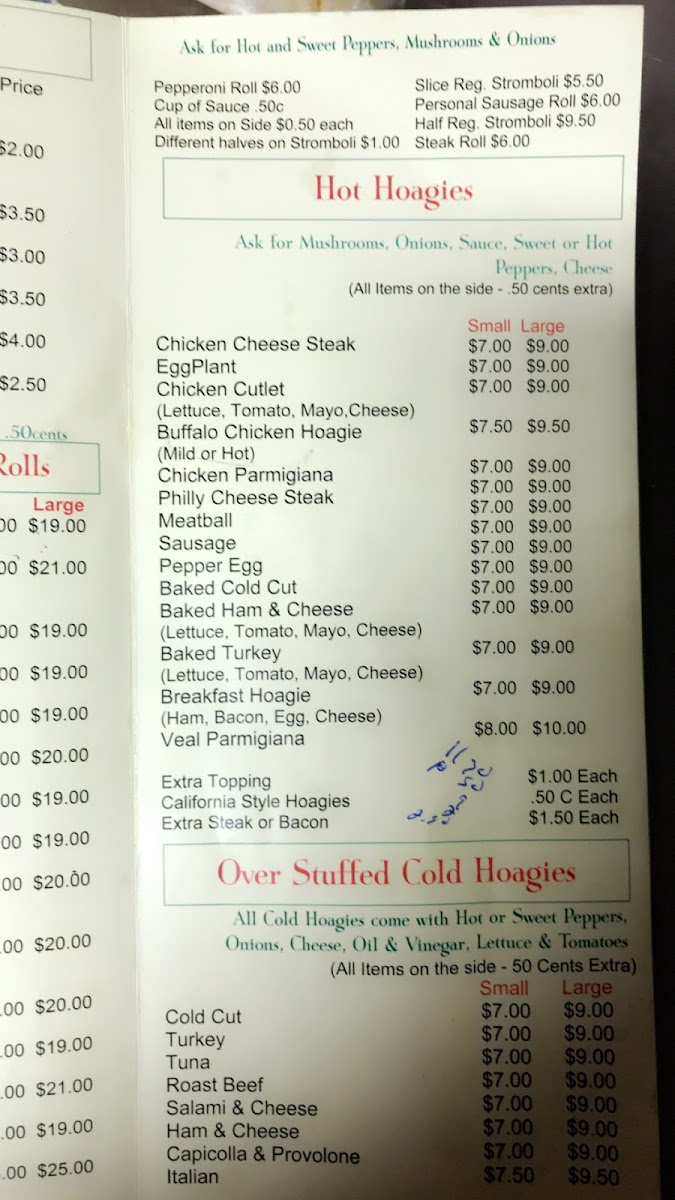 Price
$2.00
$3.50
$3.00
$3.50
$4.00
$2.50
.50cents
Rolls
Large
00 $19.00
00 $21.00
00 $19.00
00 $19.00
00 $19.00
00 $20.00
00 $19.00
00 $19.00
.00 $20.00
.00 $20.00
.00 $20.00
.00 $19.00
.00 $21.00
.00 $19.00
.00 $25.00
Ask for Hot and Sweet Peppers, Mushrooms & Onions
Pepperoni Roll $6.00 Slice Reg. Stromboli $5.50
Cup of Sauce .50c Personal Sausage Roll $6.00
All items on Side $0.50 each Half Reg. Stromboli $9.50
Different halves on Stromboli $1.00 Steak Roll $6.00
Hot Hoagies
Ask for Mushrooms, Onions, Sauce, Sweet or Hot
Peppers, Cheese
(All Items on the side - .50 cents extra)
Small Large
Chicken Cheese Steak $7.00 $9.00
EggPlant $7.00 $9.00
Chicken Cutlet $7.00 $9.00
(Lettuce, Tomato, Mayo,Cheese)
Buffalo Chicken Hoagie $7.50 $9.50
(Mild or Hot)
Chicken Parmigiana $7.00 $9.00
Philly Cheese Steak $7.00 $9.00
Meatball $7.00 $9.00
Sausage $7.00 $9.00
Pepper Egg $7.00 $9.00
Baked Cold Cut $7.00 $9.00
Baked Ham & Cheese $7.00 $9.00
(Lettuce, Tomato, Mayo, Cheese) $7.00 $9.00
Baked Turkey $7.00 $9.00
(Lettuce, Tomato, Mayo, Cheese)
Breakfast Hoagie $7.00 $9.00
(Ham, Bacon, Egg, Cheese)
Veal Parmigiana $8.00 $10.00
Extra Topping $1.00 Each
California Style Hoagies .50 C Each
Extra Steak or Bacon $1.50 Each
Over Stuffed Cold Hoagies
All Cold Hoagies come with Hot or Sweet Peppers,
Onions, Cheese, Oil & Vinegar, Lettuce & Tomatoes
(All Items on the side - 50 Cents Extra)
Small Large
Cold Cut $7.00 $9.00
Turkey $7.00 $9.00
Tuna $7.00 $9.00
Roast Beef $7.00 $9.00
Salami & Cheese $7.00 $9.00
Ham & Cheese $7.00 $9.00
Capicolla & Provolone $7.00 $9.00
Italian $7.50 $9.50